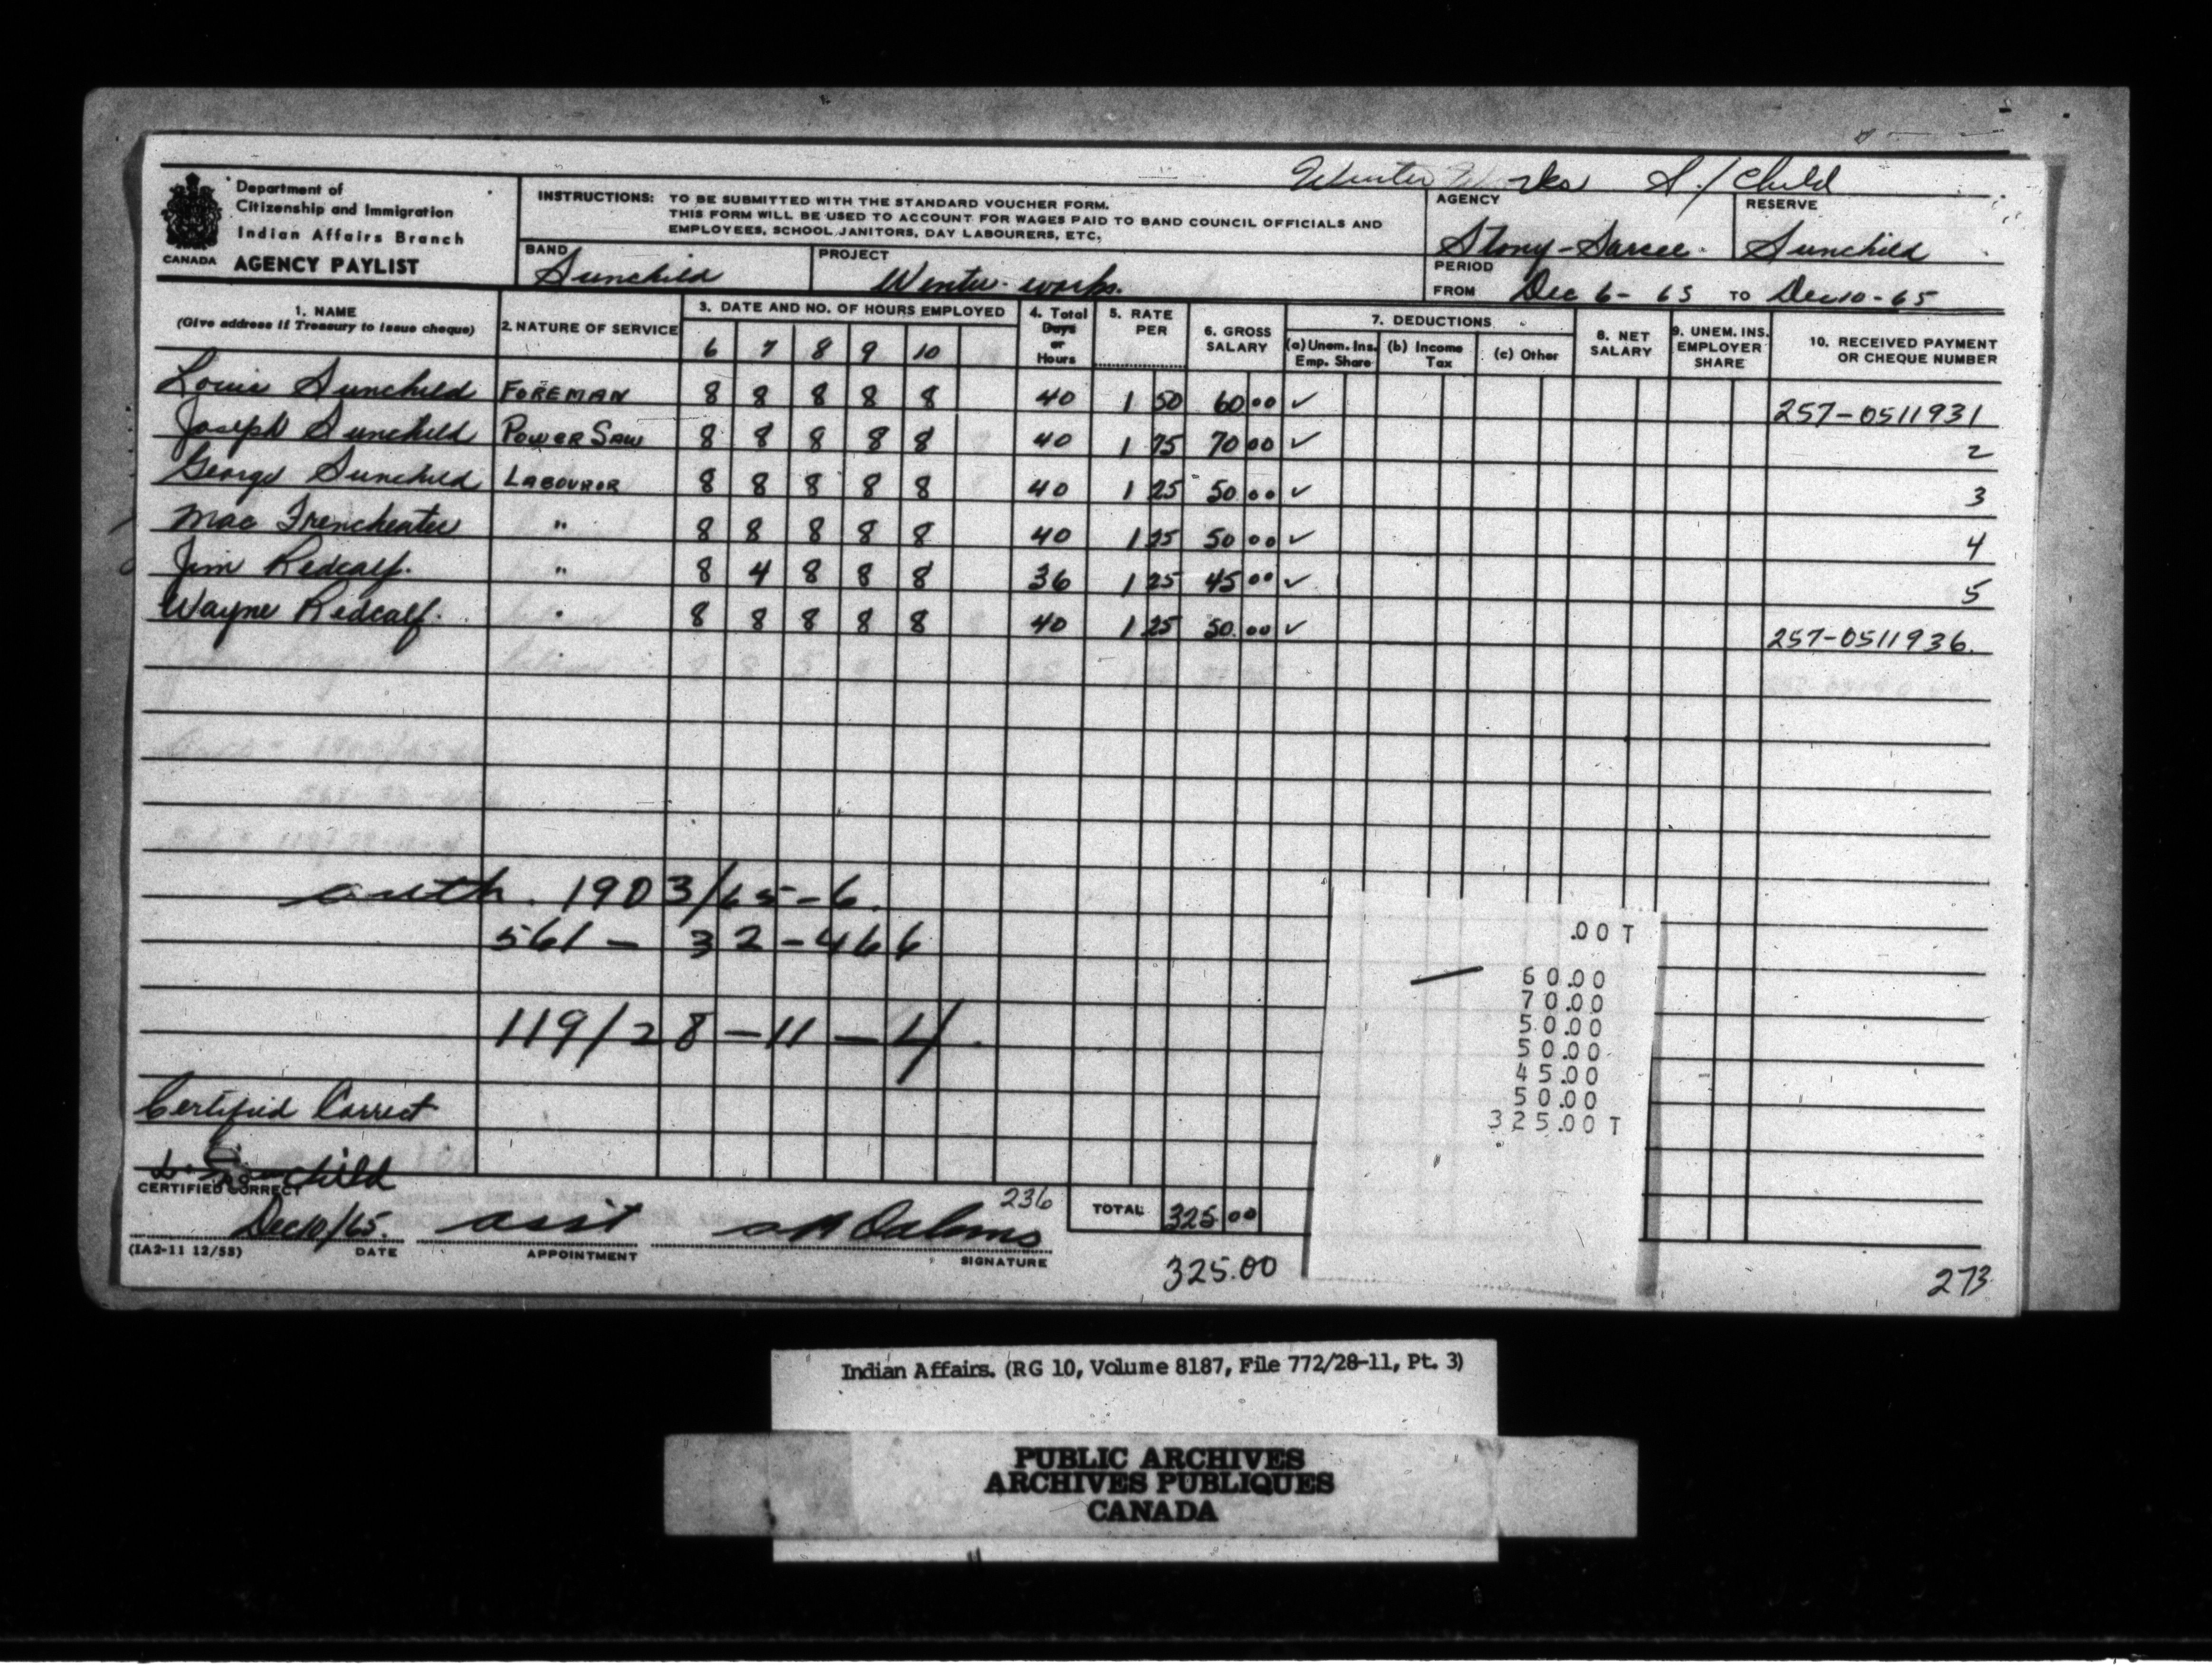 Winter Works S./Child
Department of
Citizenship and Immigration
Indian Affairs Branch
CANADA AGENCY PAYLIST
INSTRUCTIONS: TO BE SUBMITTED WITH THE STANDARD VOUCHER FORM.
THIS FORM WILL BE USED TO ACCOUNT FOR WAGES PAID TO BAND COUNCIL OFFICIALS AND
EMPLOYEES, SCHOOL JANITORS, DAY LABOURERS, ETC.
AGENCY Stony-Sarcee. RESERVE Sunchild
BAND Sunchild PROJECT Winter works.
PERIOD FROM Dec 6-65 TO Dec 10-65
1. NAME (Give address if Treasury to issue cheque) 2. NATURE OF SERVICE 3. DATE AND NO. OF HOURS EMPLOYED 4. Total Days or Hours 5. RATE PER 6. GROSS SALARY 7. DEDUCTIONS (a) Unem. Ins. Emp. Share (b) Income Tax (c) Other 8. NET SALARY 9. UNEM. INS. EMPLOYER SHARE 10. RECEIVED PAYMENT OR CHEQUE NUMBER
6 7 8 9 10
Louis Sunchild FOREMAN 8 8 8 8 8 40 1 50 60 00 ✓ 257-0511931
Joseph Sunchild POWER SAW 8 8 8 8 8 40 1 75 70 00 ✓ 2
George Sunchild LABOUROR 8 8 8 8 8 40 1 25 50 00 ✓ 3
Mac Frencheater " 8 8 8 8 8 40 1 25 50 00 ✓ 4
Jim Redcalf. " 8 4 8 8 8 36 1 25 45 00 ✓ 5
Wayne Redcalf. " 8 8 8 8 8 40 1 25 50 00 ✓ 257-0511936.
auth. 1903/65-6.
561-32-466
119/28-11-4.
.00 T
60.00
70.00
50.00
50.00
45.00
50.00
325.00 T
Certified Correct
L. Sunchild
CERTIFIED CORRECT
236
TOTAL 325 00
Dec 10/65. asst
(IA2-11 12/58) DATE APPOINTMENT SIGNATURE
325.00
273
Indian Affairs. (RG 10, Volume 8187, File 772/28-11, Pt. 3)
PUBLIC ARCHIVES
ARCHIVES PUBLIQUES
CANADA